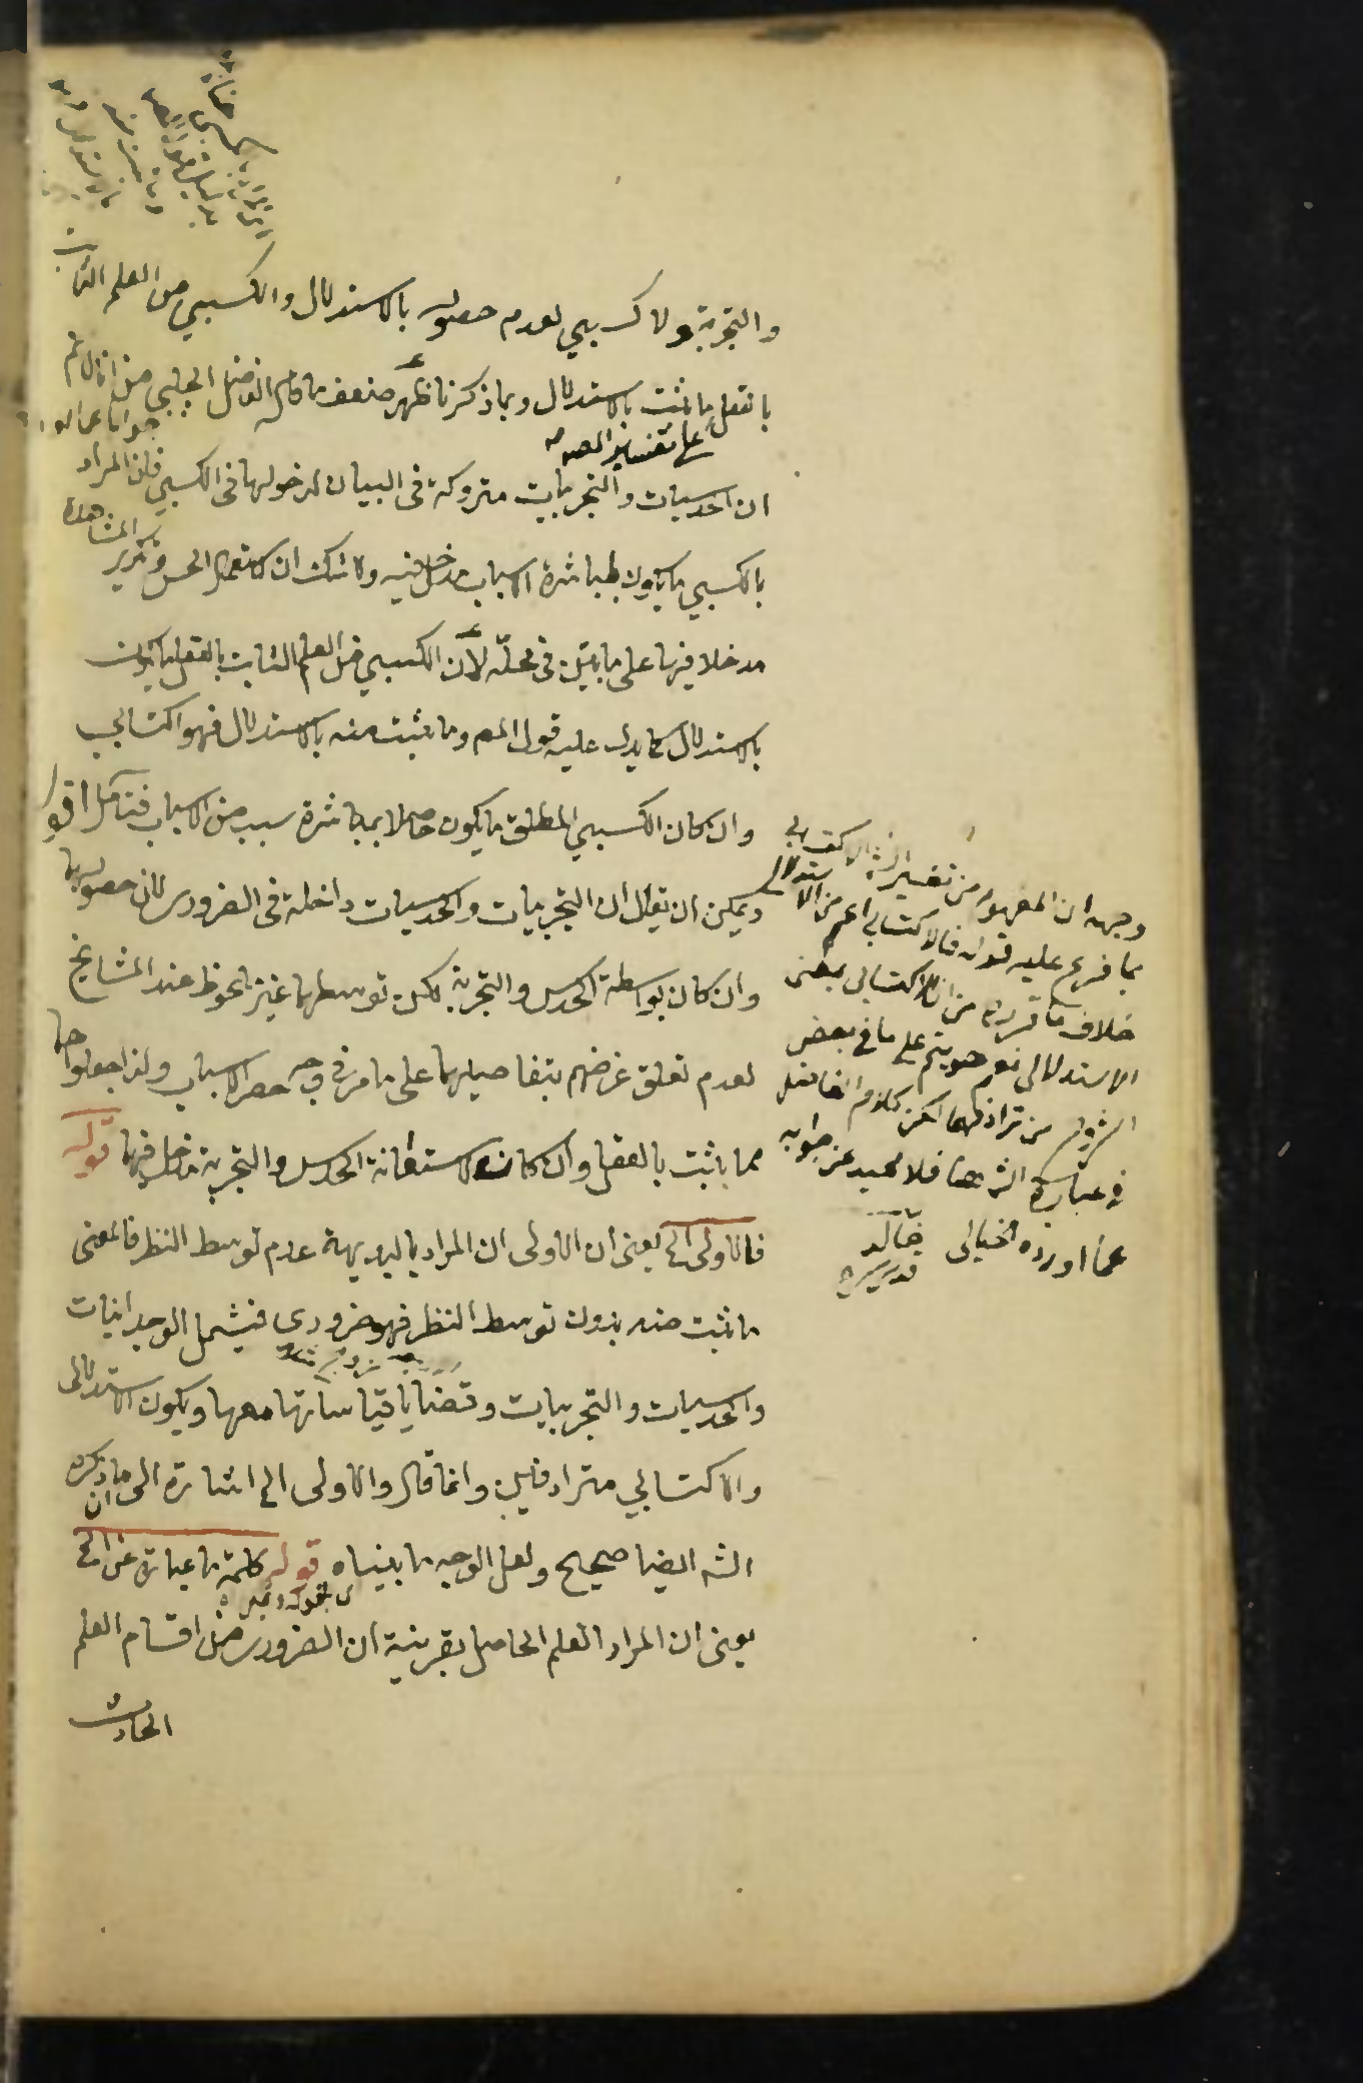 والتجربة ولا كسبي لعدم حصوله بالاستدلال والكسبي من العلم الثابت
بالعقل ما يثبت بالاستدلال وبما ذكرنا ظهر ضعف ما قال الفاضل الجلبي من
على تفسير المصـ
ان الحدسيات والتجربيات متروكة فى البيان لدخولها فى الكسبي فان المراد
بالكسبي ما يكون لمباشرة الاسباب مدخل فيه ولا شك ان لاستعمال الحس وتكرير المشاهدة
مدخلا فيها على ما بين فى محله لان الكسبي من العلم الثابت بالعقل ما يكون
بالاستدلال كما يدل عليه قول المصـ وما يثبت منه بالاستدلال فهو اكتسابي
وان كان الكسبي المطلق ما يكون حاصلا بمباشرة سبب من الاسباب فتأمل اقول
ويمكن ان يقال ان التجربيات والحدسيات داخلة فى الضروري لان حصولها
وان كان بواسطة الحدس والتجربة لكن توسطهما غير ملحوظ عند المشايخ
لعدم تعلق غرضهم بتفاصيلهما على ما مر في وجه حصر الاسباب ولذا جعلوها
مما يثبت بالعقل وان كان لاستعانة الحدس والتجربة مدخل فيها قوله
فالاولى الخ يعنى ان الاولى ان المراد بالبديهة عدم توسط النظر فالمعنى
ما يثبت منه بدون توسط النظر فهو ضروري فيشمل الوجدانيات
والحدسيات والتجربيات وقضايا قياساتها معها ويكون الاستدلالى
والاكتسابي مترادفين وانما قال والاولى الخ اشارة الى ان ما ذكره
الشـ ايضا صحيح ولعل الوجه ما بيناه قوله كلمة ما عبارة عن الخ
يعنى ان المراد العلم الحاصل بقرينة ان الضروري من اقسام العلم
الحادث
وجهه ان المفهوم من تفسير الشـ الاكتسابي
بما فرع عليه قوله فالاكتسابي اعم من الاستدلالى
خلاف ما قرره من ان الاكتسابى بمعنى
الاستدلالى نعم هو يتم على ما فى بعض
الشروح من ترادفهما لكن كلام الفاضل
في عبارة الشـ هنا فلا محيد عن جوابه
عما اورده الخيالى خالد
قدس سره